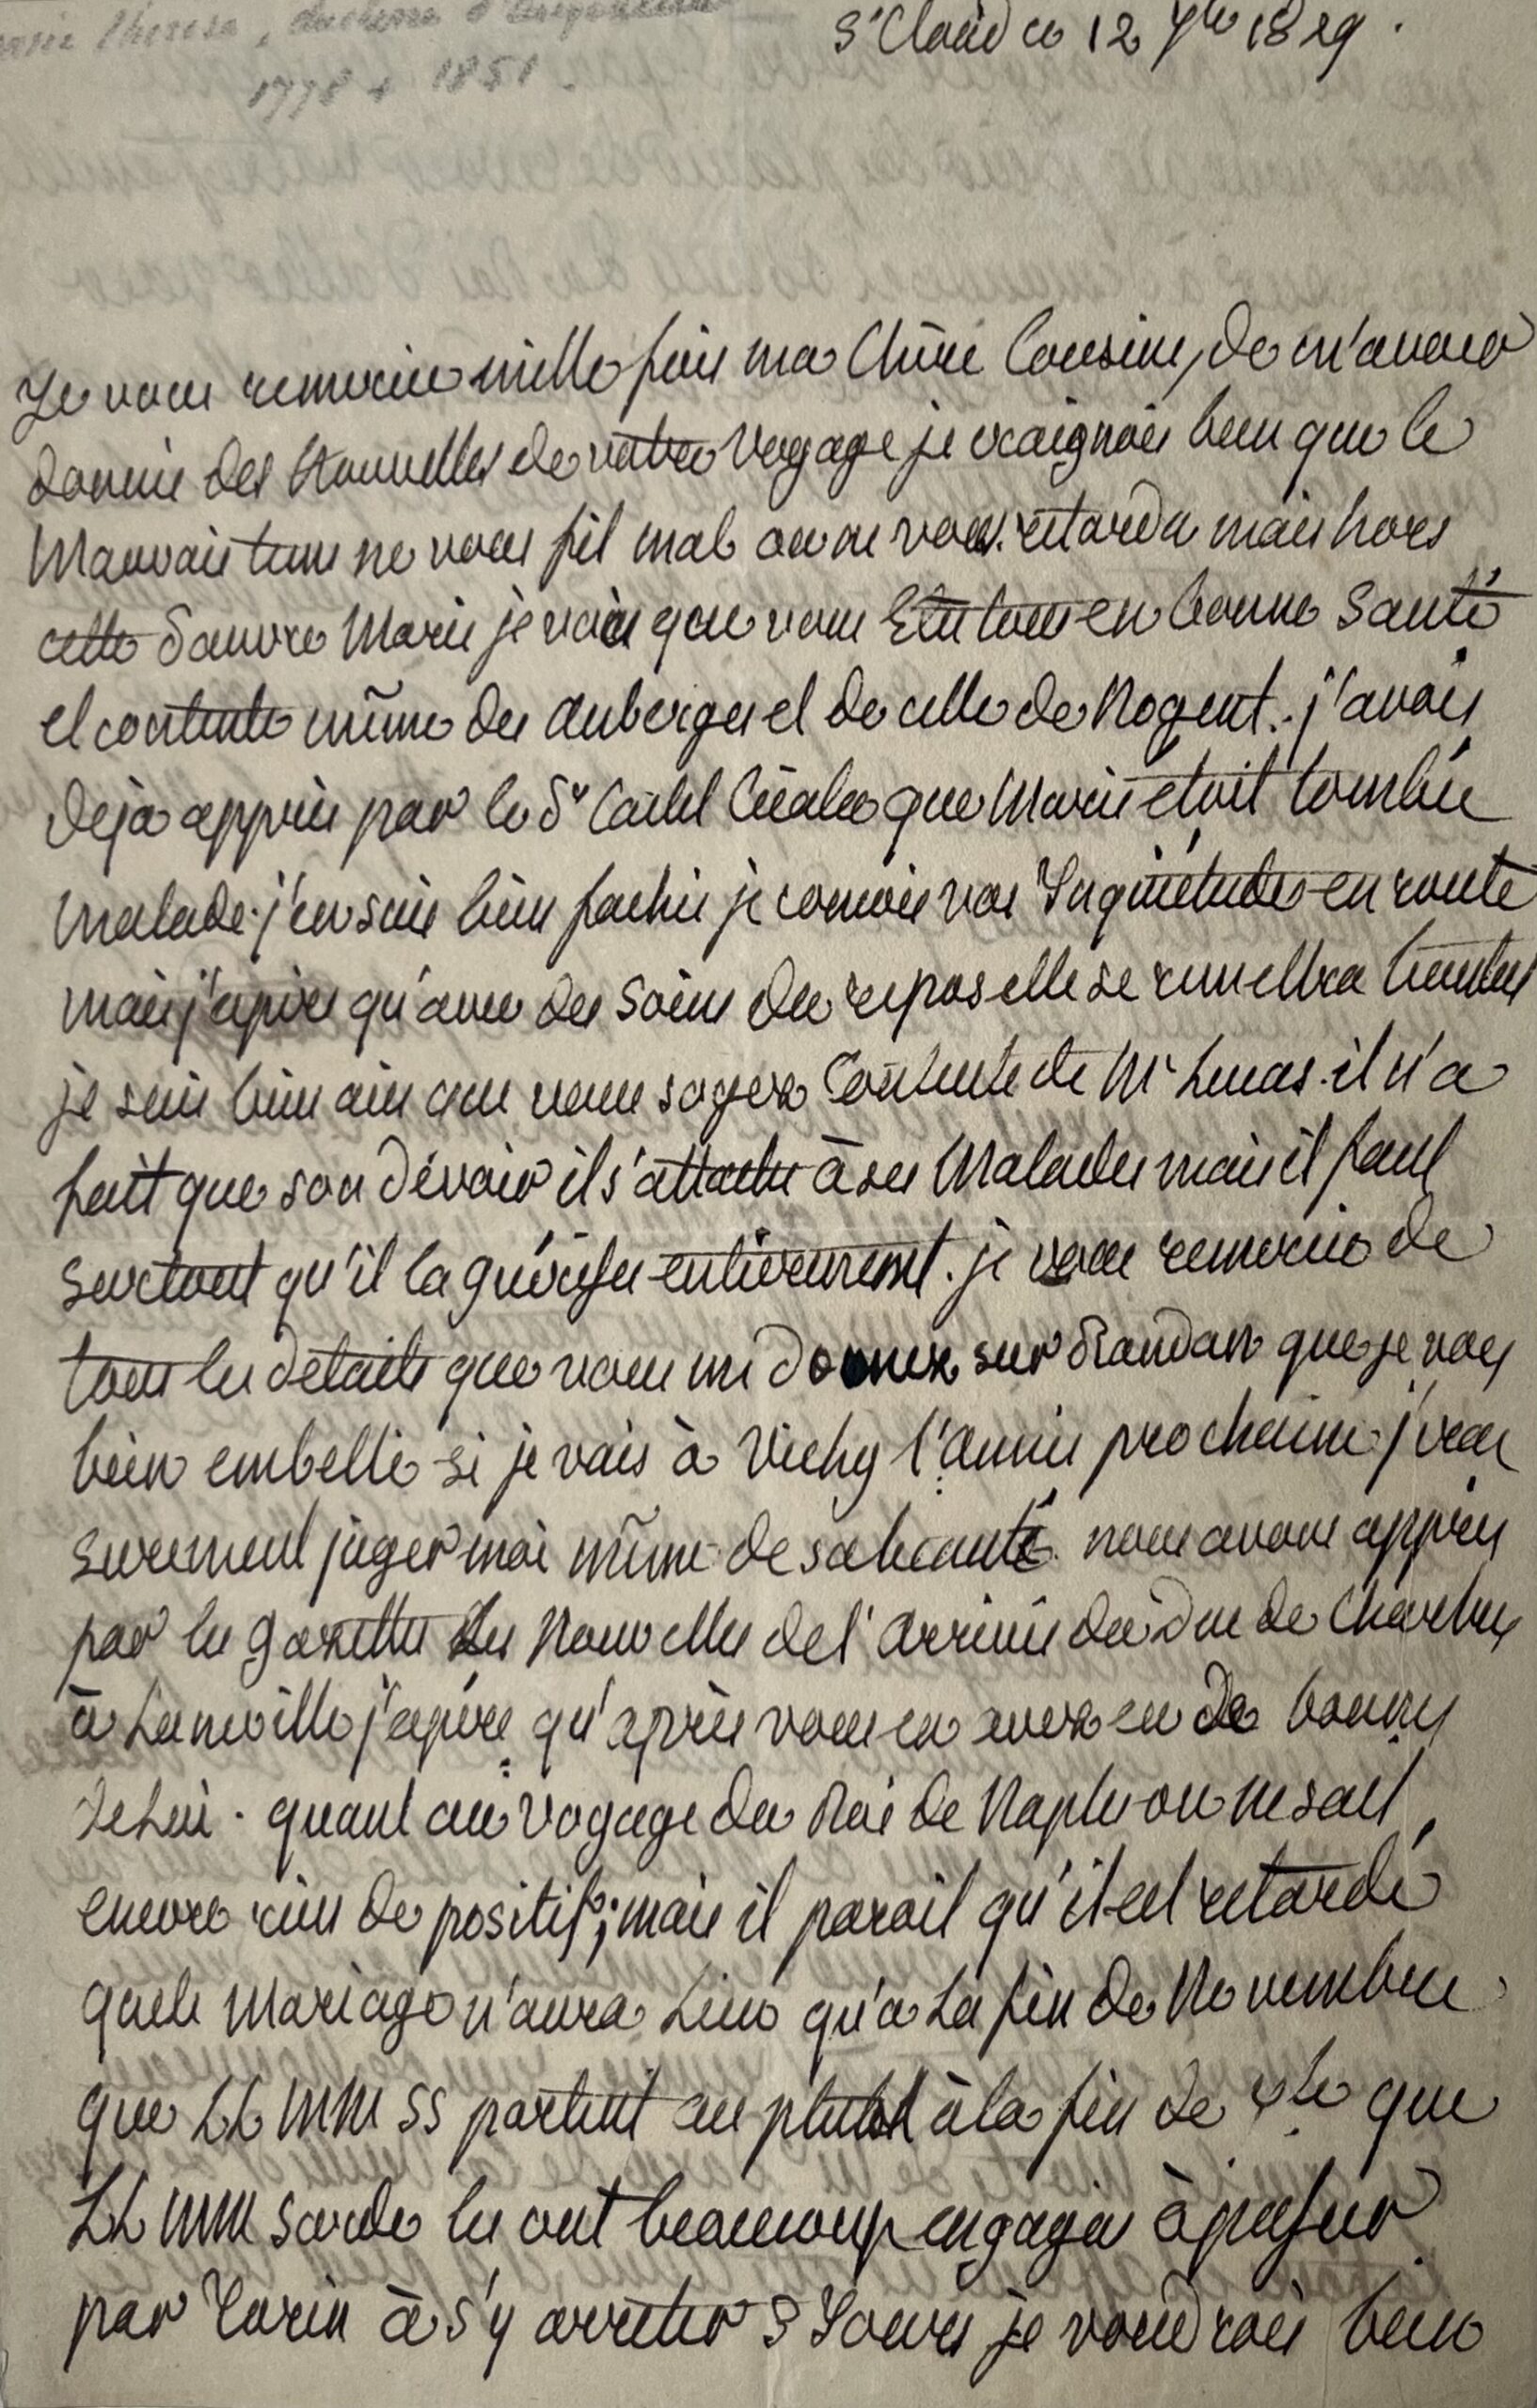 Marie Theresa, duchesse d'Angouleme
1778 + 1851.
St Cloud ce 12 7bre 1829.
Je vous remercie mille fois ma Chère Cousine, de m'avoir
donnée des Nouvelles de votre Voyage je craignois bien que le
Mauvais tems ne vous fit mal ou ne vous retarda mais hors
cette Pauvre Marie je vois que vous Etes tous en bonne Santé
et contente même des Auberges et de celle de Nogent. j'avois
deja appris par le Dr que Marie étoit tombée
Malade. j'en suis bien fachée je conçois vos Inquiétudes en route
mais j'espère qu'avec des Soins du repos elle se remettra bientot
je suis bien aise que vous soyez Contente de Mr Lucas. il n'a
fait que son dévoir il s'attache à ses Malades mais il faut
surtout qu'il la guérisse entièrement. je vous remercie de
tous les détails que vous me donnez sur Randan que je vois
bien embelli si je vais à Vichy l'année prochaine j'irai
surement juger moi même de sa beauté. nous avons appris
par les gazettes des Nouvelles de l'Arrivée du Duc de Chartres
à Luneville j'espère qu'après vous en avez eu de bonnes
de Lui. quant au Voyage du Roi de Naples on ne sait
encore rien de positif; mais il paroit qu'il est retardé
que le Mariage n'aura Lieu qu'a La fin de Novembre
que LL MM SS partent au plutot à la fin de 7bre que
LL MM Sarde les ont beaucoup engagés à passer
par Turin à s'y arreter 3 Jours je voudrois bien